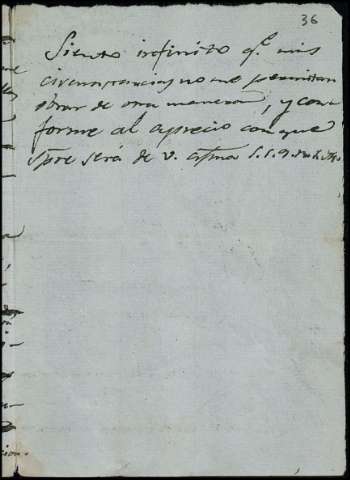 36
Siento infinito q.e mis
circunstancias no me permitan
obrar de otra manera, y con
forme al aprecio con que
spre será de V. afmo S. S. Q.